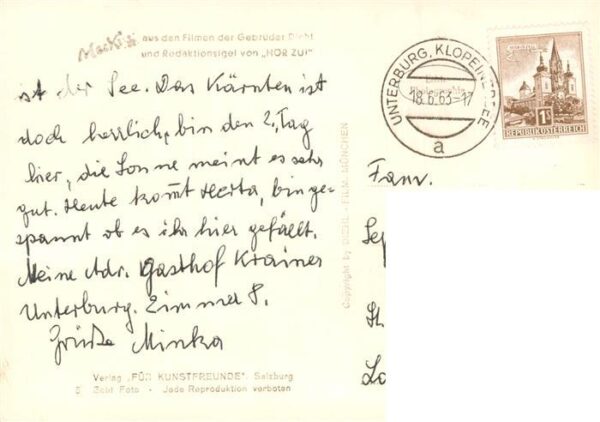 aus den Filmen der Gebrüder Diehl
und Redaktionsigel von „HÖR ZU!“
ist der See. Das Kärnten ist
doch herrlich, bin den 2. Tag
hier, die Sonne meint es sehr
gut. Heute kommt Herta, bin ge-
spannt ob es ihr hier gefällt.
Meine Adr. Gasthof Krainer
Unterburg. Zimmer 8.
Grüße Minka
Verlag „FÜR KUNSTFREUNDE“, Salzburg
Echt Foto - Jede Reproduktion verboten
Copyright by DIEHL-FILM, MÜNCHEN
UNTERBURG, KLOPEINERSEE
18.6.63-17
a
1S
REPUBLIK ÖSTERREICH
Fam.